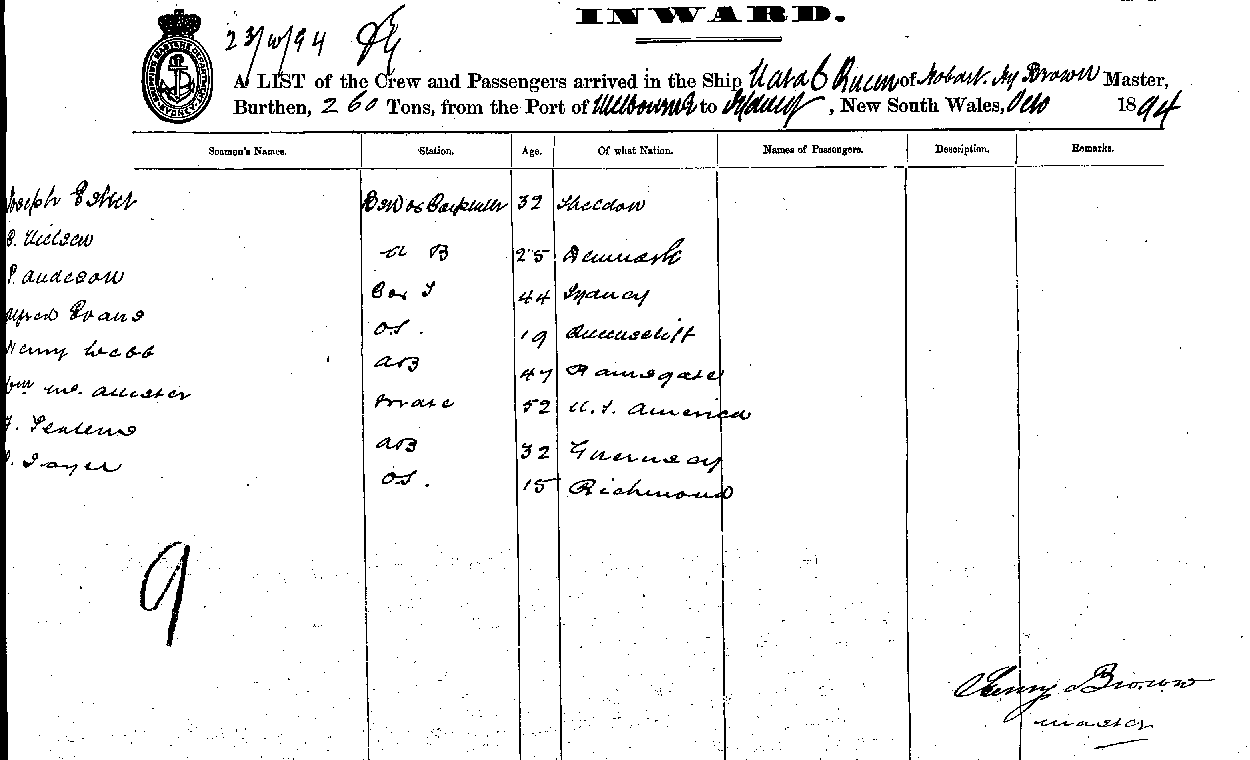 INWARD.
23/10/94
A LIST of the Crew and Passengers arrived in the Ship of Hobart. Hy Brown Master,
Burthen, 260 Tons, from the Port of Melbourne to Sydney, New South Wales, Octo 1894
Seamen's Names. Station. Age. Of what Nation. Names of Passengers. Description. Remarks.
Joseph Carpenter 32
Nielsen A B 25 Denmark
Anderson 44 Sydney
Alfred Evans OS. 19 Queenscliff
Henry Webb AB 47 Ramsgate
Wm Mc Mate 52 U.S. America
AB 32 Guernsey
OS. 15 Richmond
9
Henry Brown
Master